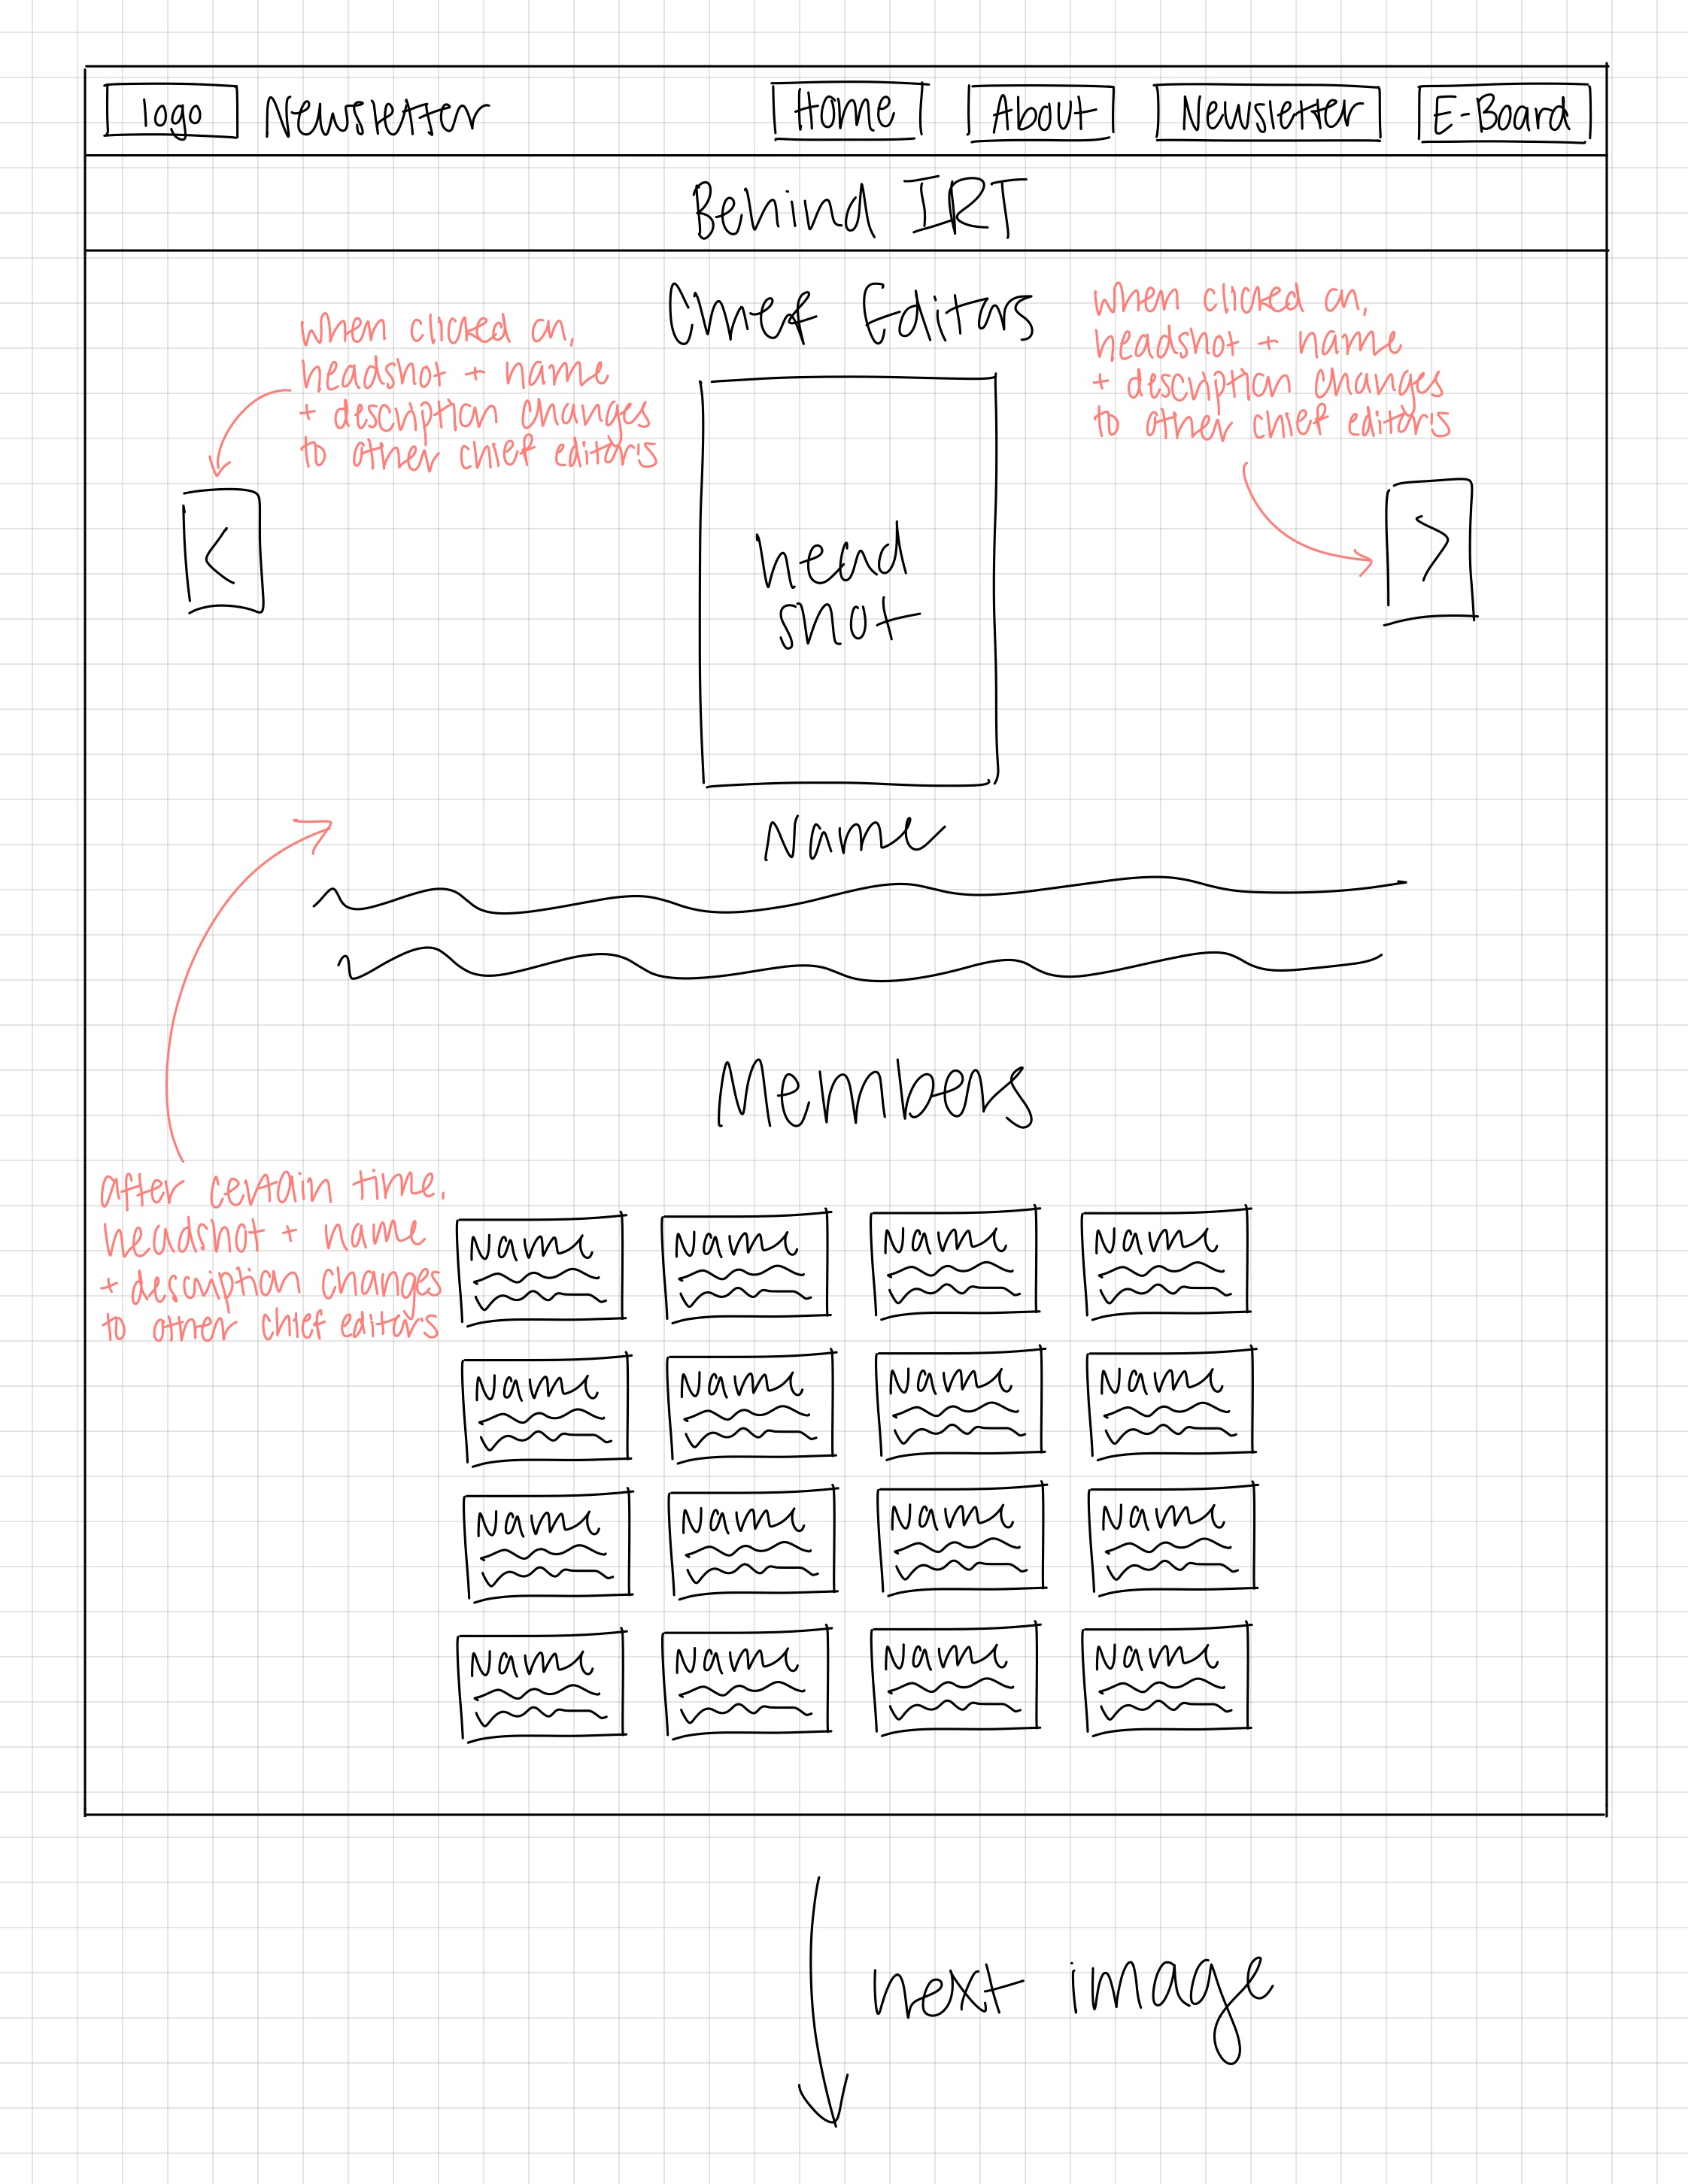 logo Newsletter Home About Newsletter E-Board
Behind IRT
Chief Editors
when clicked on,
headshot + name
+ description changes
to other chief editors
when clicked on,
headshot + name
+ description changes
to other chief editors
<
>
head
shot
Name
Members
after certain time,
headshot + name
+ description changes
to other chief editors
Name Name Name Name
Name Name Name Name
Name Name Name Name
Name Name Name Name
next image